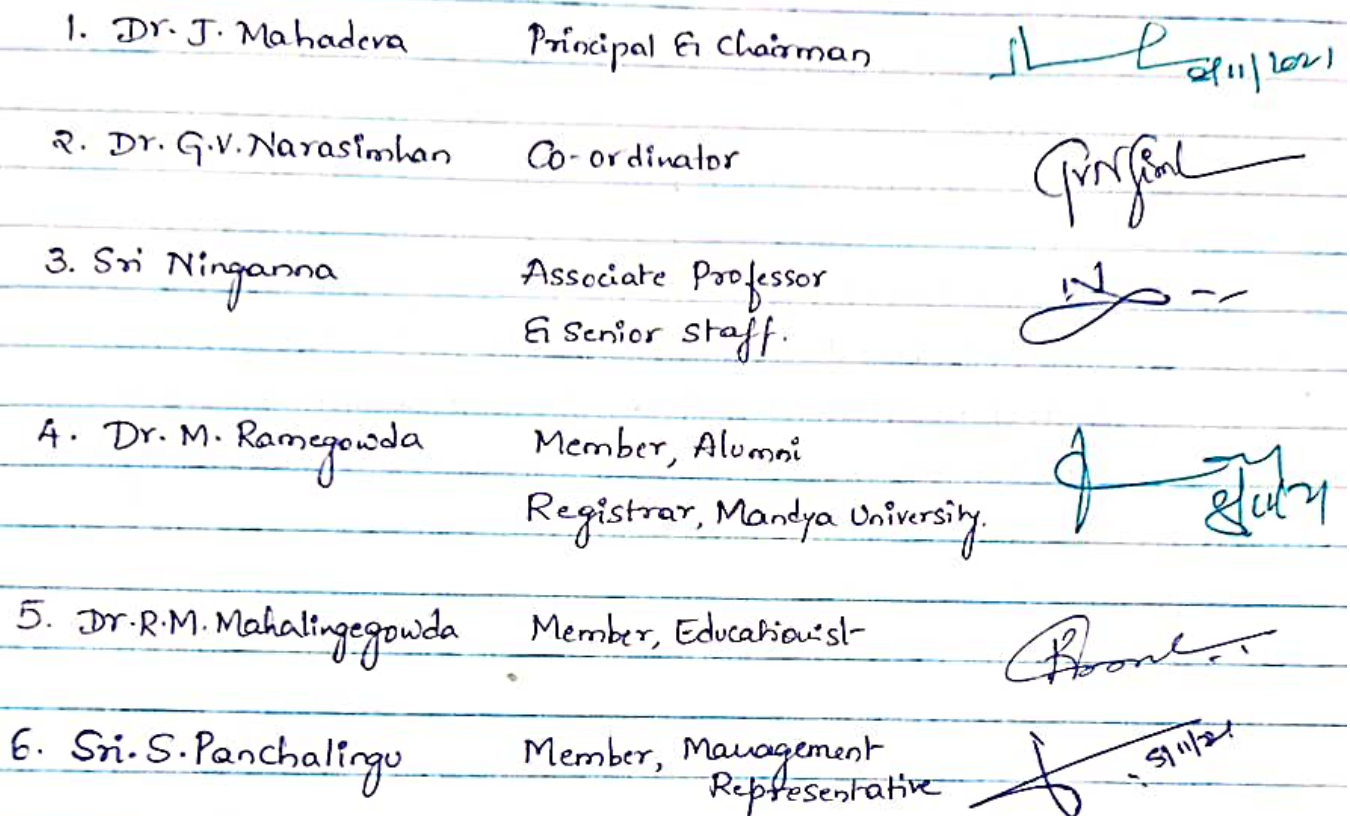 1. Dr. J. Mahadeva Principal & Chairman
2. Dr. G.V. Narasimhan Co-ordinator
3. Sri Ninganna Associate Professor
& Senior staff.
4. Dr. M. Ramegowda Member, Alumni
Registrar, Mandya University.
5. Dr. R.M. Mahalingegowda Member, Educationist
6. Sri. S. Panchalingu Member, Management
Representative 5/11/21